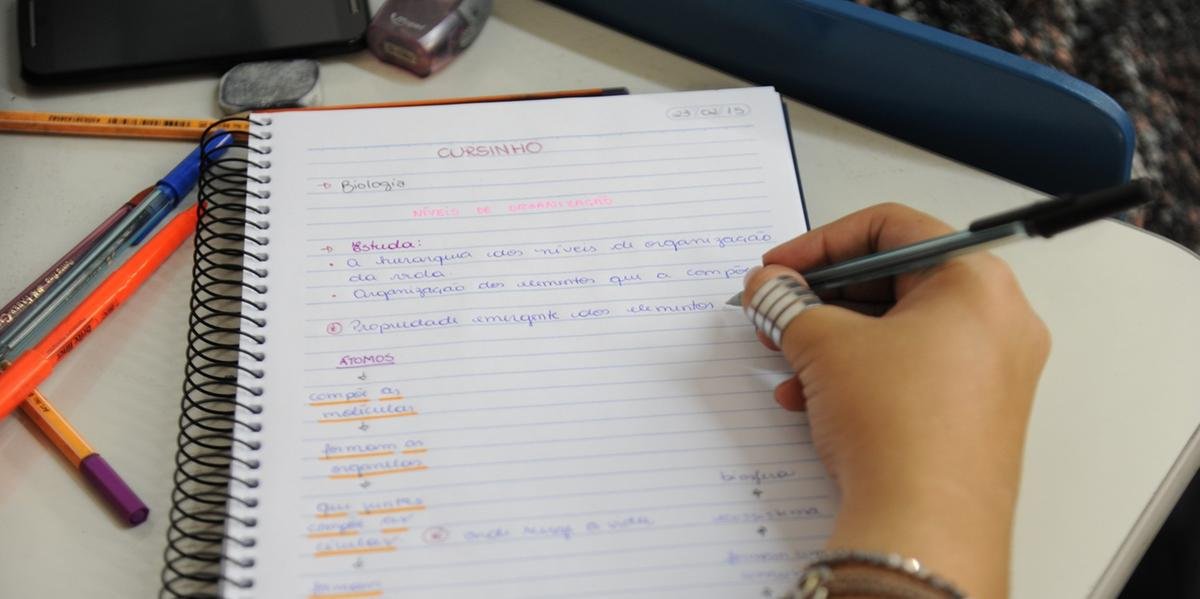 23/02/15
CURSINHO
→ Biologia
NÍVEIS DE ORGANIZAÇÃO
→ Estuda:
• a hierarquia dos níveis de organização
da vida
• Organização dos elementos que a compõe
* Propriedade emergente dos elementos
ÁTOMOS
↓
compõe as
moléculas
↓
formam as
organelas
↓
que juntas
compõe as
células
* onde surge a vida
↓
formam
biosfera
↑
ecossistema
↑
formam um